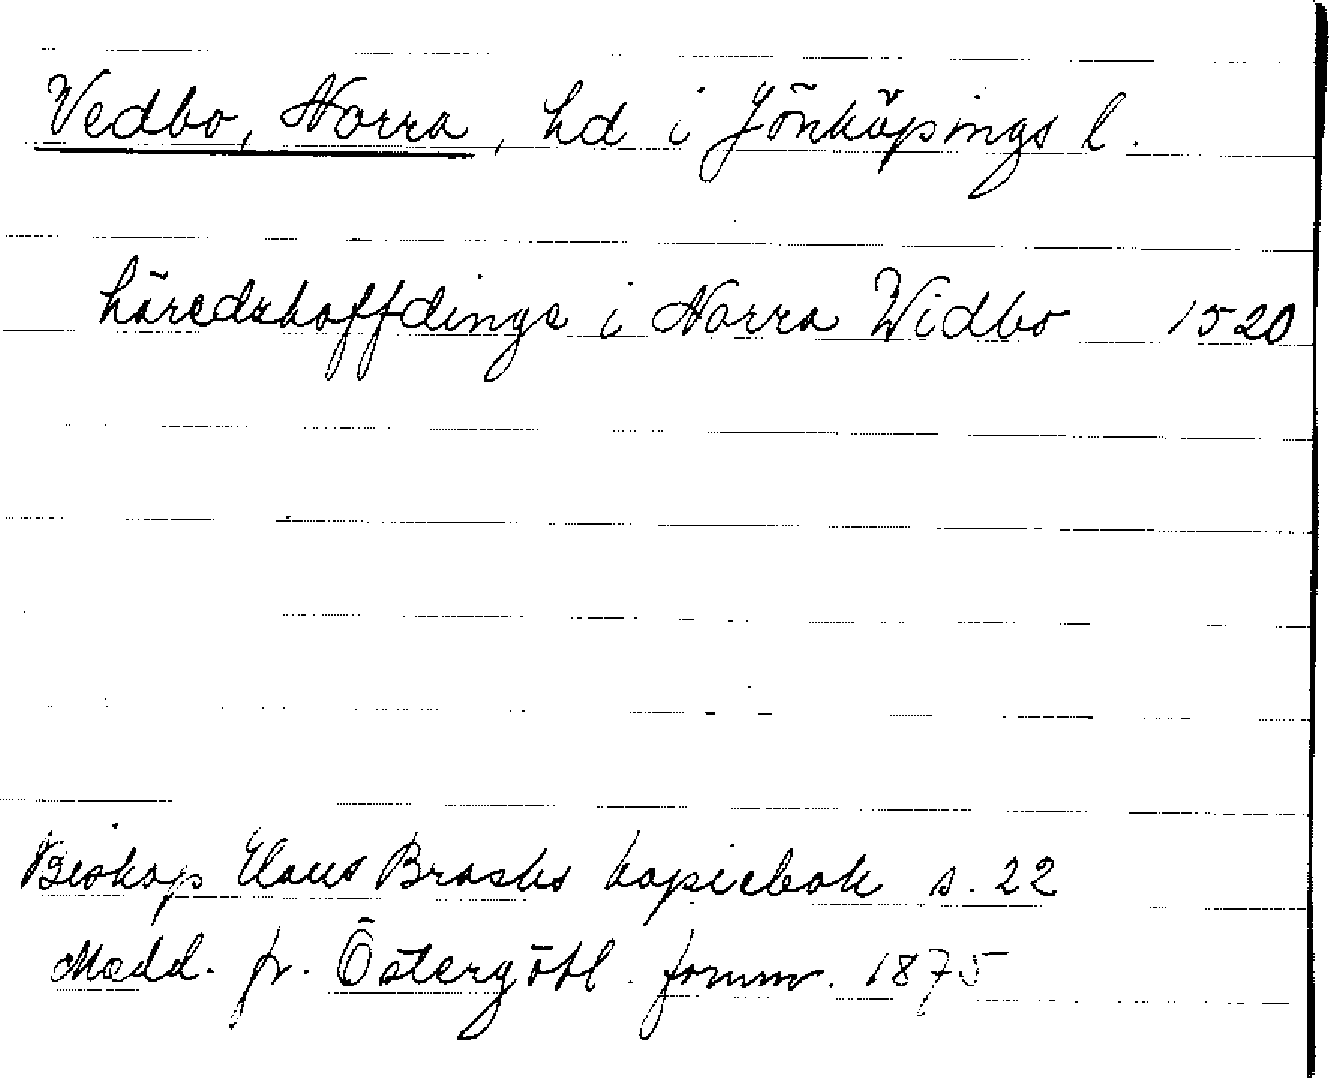 Vedbo, Norra, hd i Jönköpings l.
häredzhoffdinge i Norra Widbo 1520
Biskop Claus Brasks kopiebok s. 22
Medd. fr. Östergötl. fornm. 1875